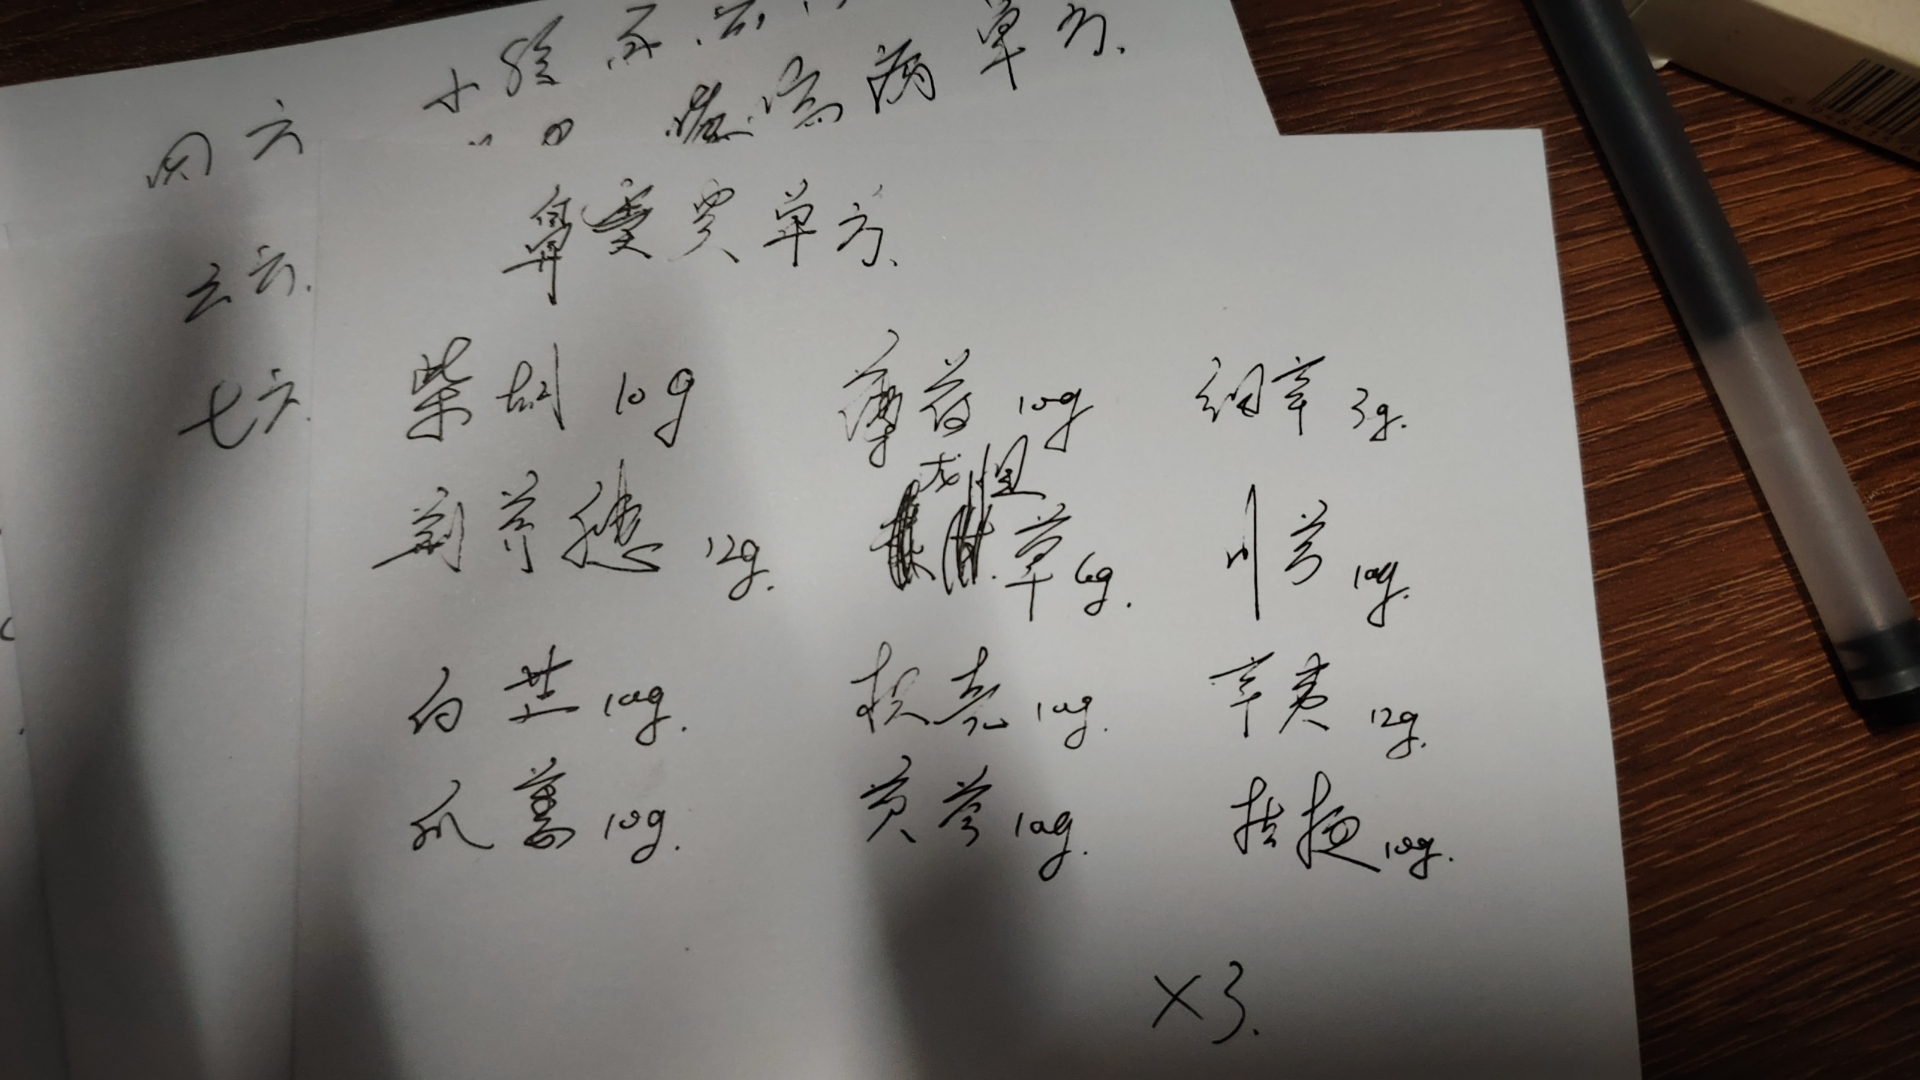 病单方、
四方
鼻窦炎单方、
云方.
七方.
柴胡 10g 薄荷 10g 细辛 3g.
荆芥穗 12g. 龙胆草 6g. 川芎 10g.
白芷 10g. 枳壳 10g. 辛夷 12g.
瓜蒌 10g. 黄芩 10g. 桔梗 10g.
×3.